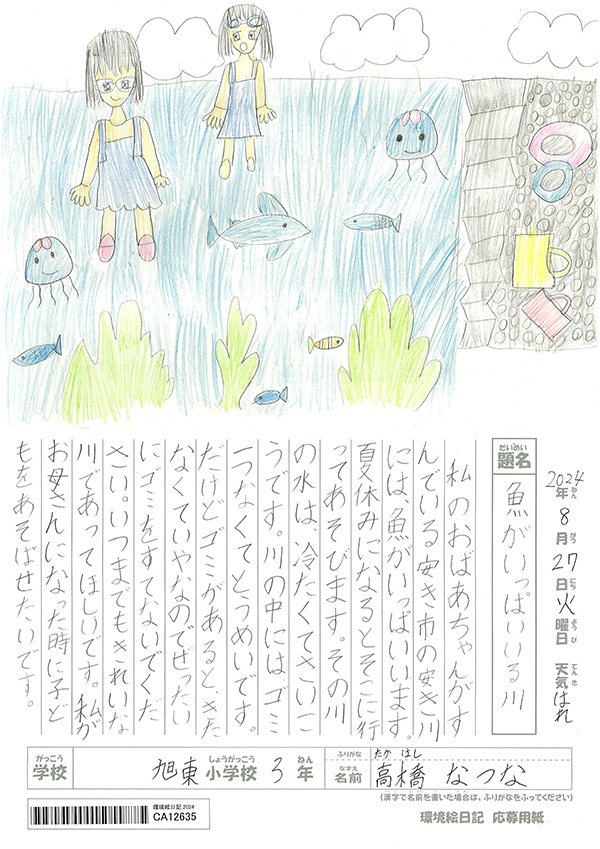 2024年ねん8月がつ27日にち火曜日ようび 天気てんきはれ
題名だいめい
魚がいっぱいいる川
私のおばあちゃんがす
んでいる安き市の安き川
には、魚がいっぱいいます。
夏休みになるとそこに行
ってあそびます。その川
の水は、冷たくてさいこ
うです。川の中には、ゴミ
一つなくてとうめいです。
だけどゴミがあると、きた
なくていやなのでぜったい
にゴミをすてないでくだ
さい。いつまでもきれいな
川であってほしいです。私が
お母さんになった時に子ど
もをあそばせたいです。
がっこう しょうがっこう ねん ふりがな たかはし
学校 旭東小学校 3年 なまえ 名前 高橋 なつな
(漢字で名前を書いた場合は、ふりがなをふってください)
環境絵日記 応募用紙
環境絵日記 2024
CA12635